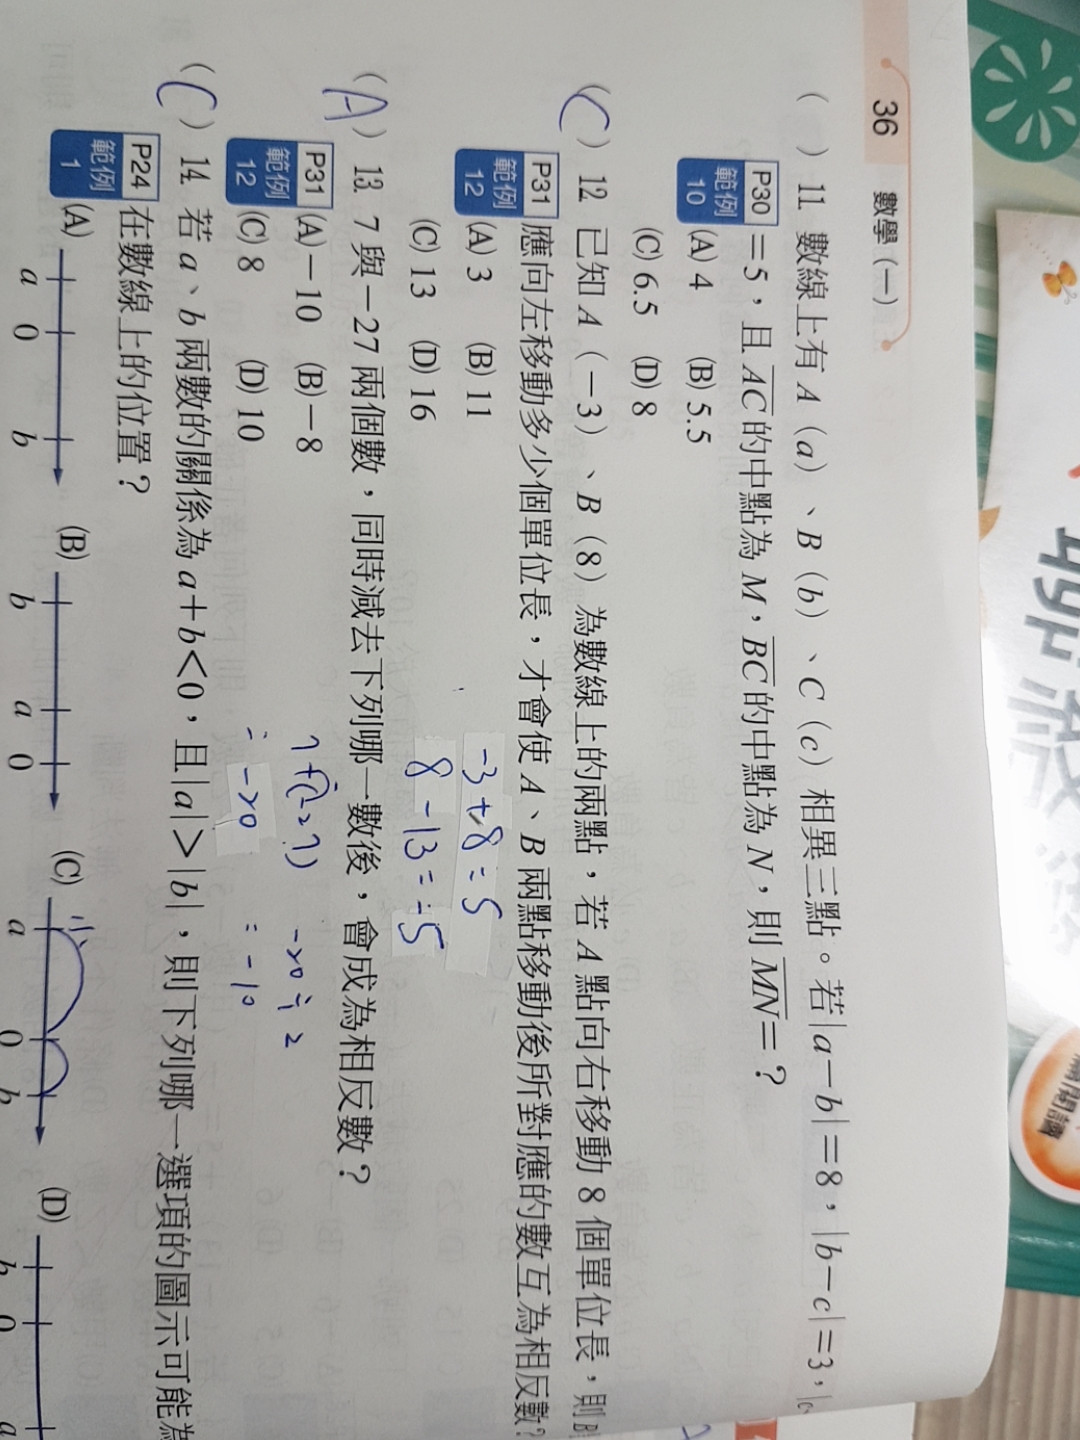 36 數學(一)
( ) 11. 數線上有 A(a)、B(b)、C(c)相異三點。若|a－b|＝8，|b－c|＝3，|c
P30 範例 10
＝5，且AC的中點為 M，BC的中點為 N，則MN＝？
(A) 4 (B) 5.5
(C) 6.5 (D) 8
(C) 12. 已知 A(－3)、B(8)為數線上的兩點，若 A 點向右移動 8 個單位長，則 B
P31 範例 12
應向左移動多少個單位長，才會使 A、B 兩點移動後所對應的數互為相反數？
(A) 3 (B) 11
(C) 13 (D) 16
-3+8=5
8-13=-5
(A) 13. 7 與－27 兩個數，同時減去下列哪一數後，會成為相反數？
P31 範例 12
(A)－10 (B)－8
(C) 8 (D) 10
7+(-27)
= -20
-20÷2
= -10
(C) 14. 若 a、b 兩數的關係為 a＋b＜0，且|a|＞|b|，則下列哪一選項的圖示可能為
P24 範例 1
在數線上的位置？
(A) (B) (C) (D)
小
a 0 b b a 0 a 0 b b 0 a